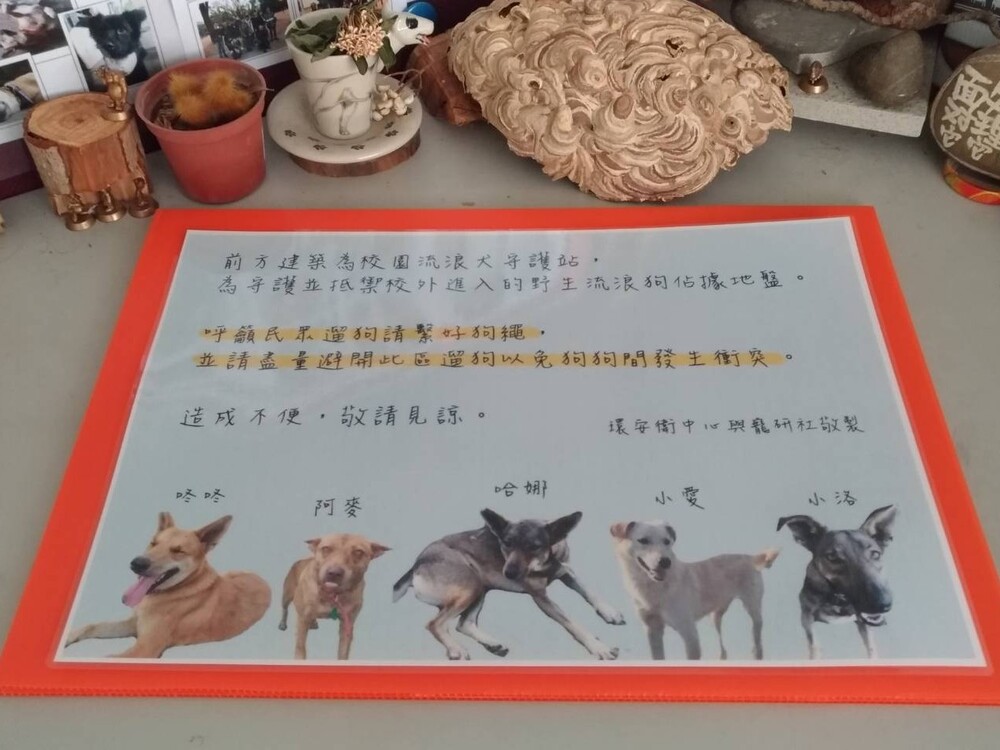 前方建築為校園流浪犬守護站，
為守護並抵禦校外進入的野生流浪狗佔據地盤。
呼籲民眾遛狗請繫好狗繩，
並請盡量避開此區遛狗以免狗狗間發生衝突。
造成不便，敬請見諒。
環安衛中心與龍研社敬製
咚咚
阿麥
哈娜
小愛
小洛